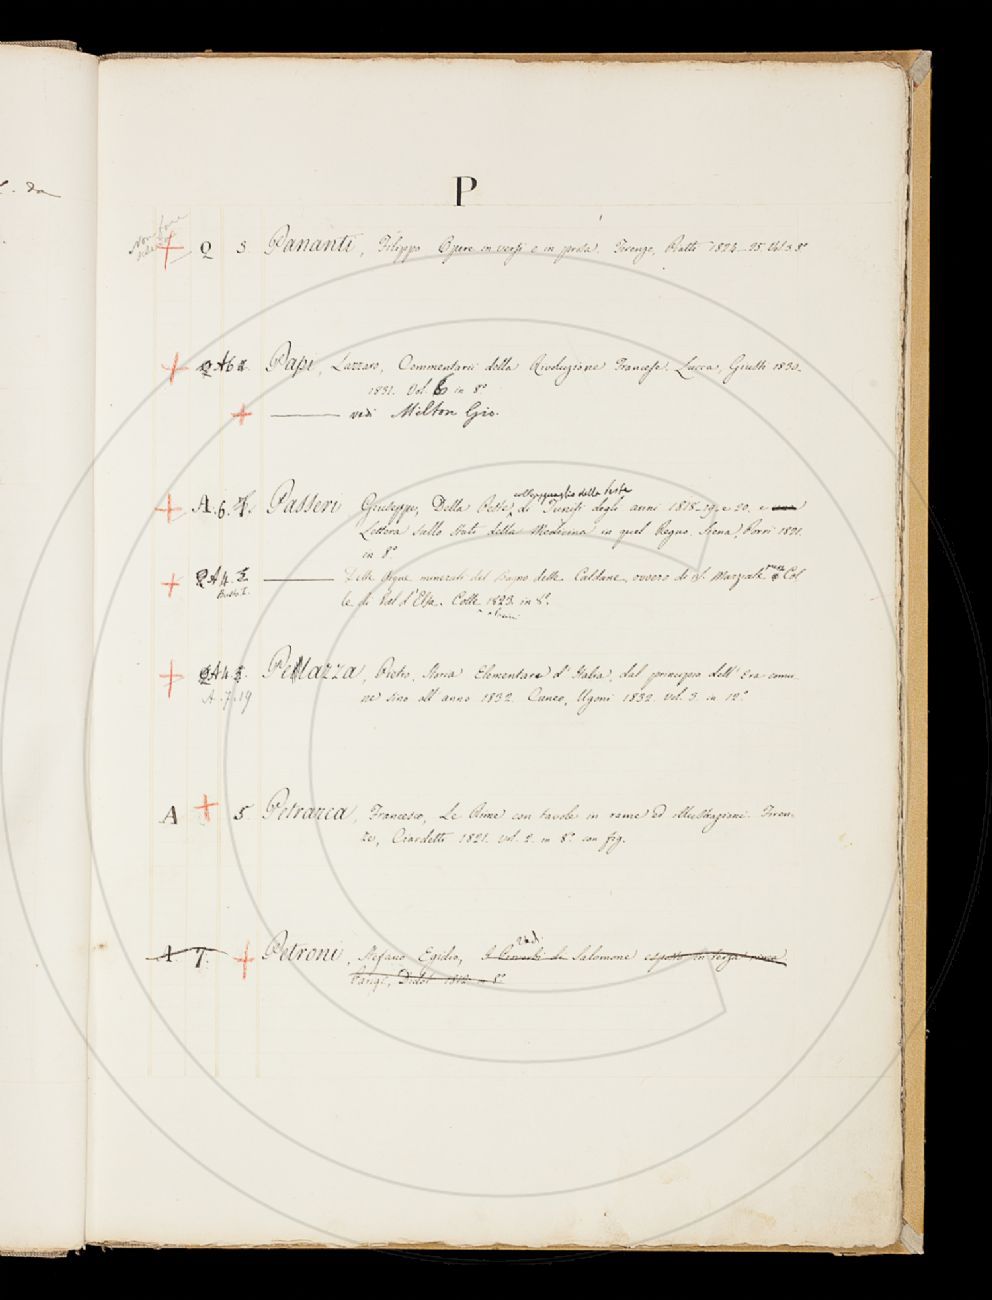 P
Q 3. Pananti, Filippo Opere in versi e in prosa. Firenze, Piatti 1824-25. Vol. 3. 8°
A 6 Papi, Lazzaro, Commentarii della Rivoluzione Francese. Lucca, Giusti 1830.
1831. Vol. 6 in 8°
vedi Milton Gio.
coll'ragguaglio della
A. 6. 7. Passeri Giuseppe, Della Peste di Tunisi degli anni 1818-19, e 20. e
Lettera sullo stato della Medicina in quel Regno. Siena, Porri 1821.
in 8°
A 4. Delle Acque minerali del Bagno delle Caldane, ovvero di S. Marziale presso Col
Busta I.
le di Val d'Elsa. Colle 1823. in 8°.
A 4 Pellazza, Pietro, Storia Elementare d'Italia, dal principio dell'Era comu-
A. 7. 19
ne sino all'anno 1832. Cuneo, Ugoni 1832. Vol. 3. in 12°
A 5. Petrarca, Francesco, Le Rime con tavole in rame ed illustrazioni. Firen-
ze, Ciardetti 1821. Vol. 2. in 8° con fig.
vedi
A 7. Petroni, Stefano Egidio, I Proverbi di Salomone esposti in terza rima
Parigi, Didot 1812 in 8°